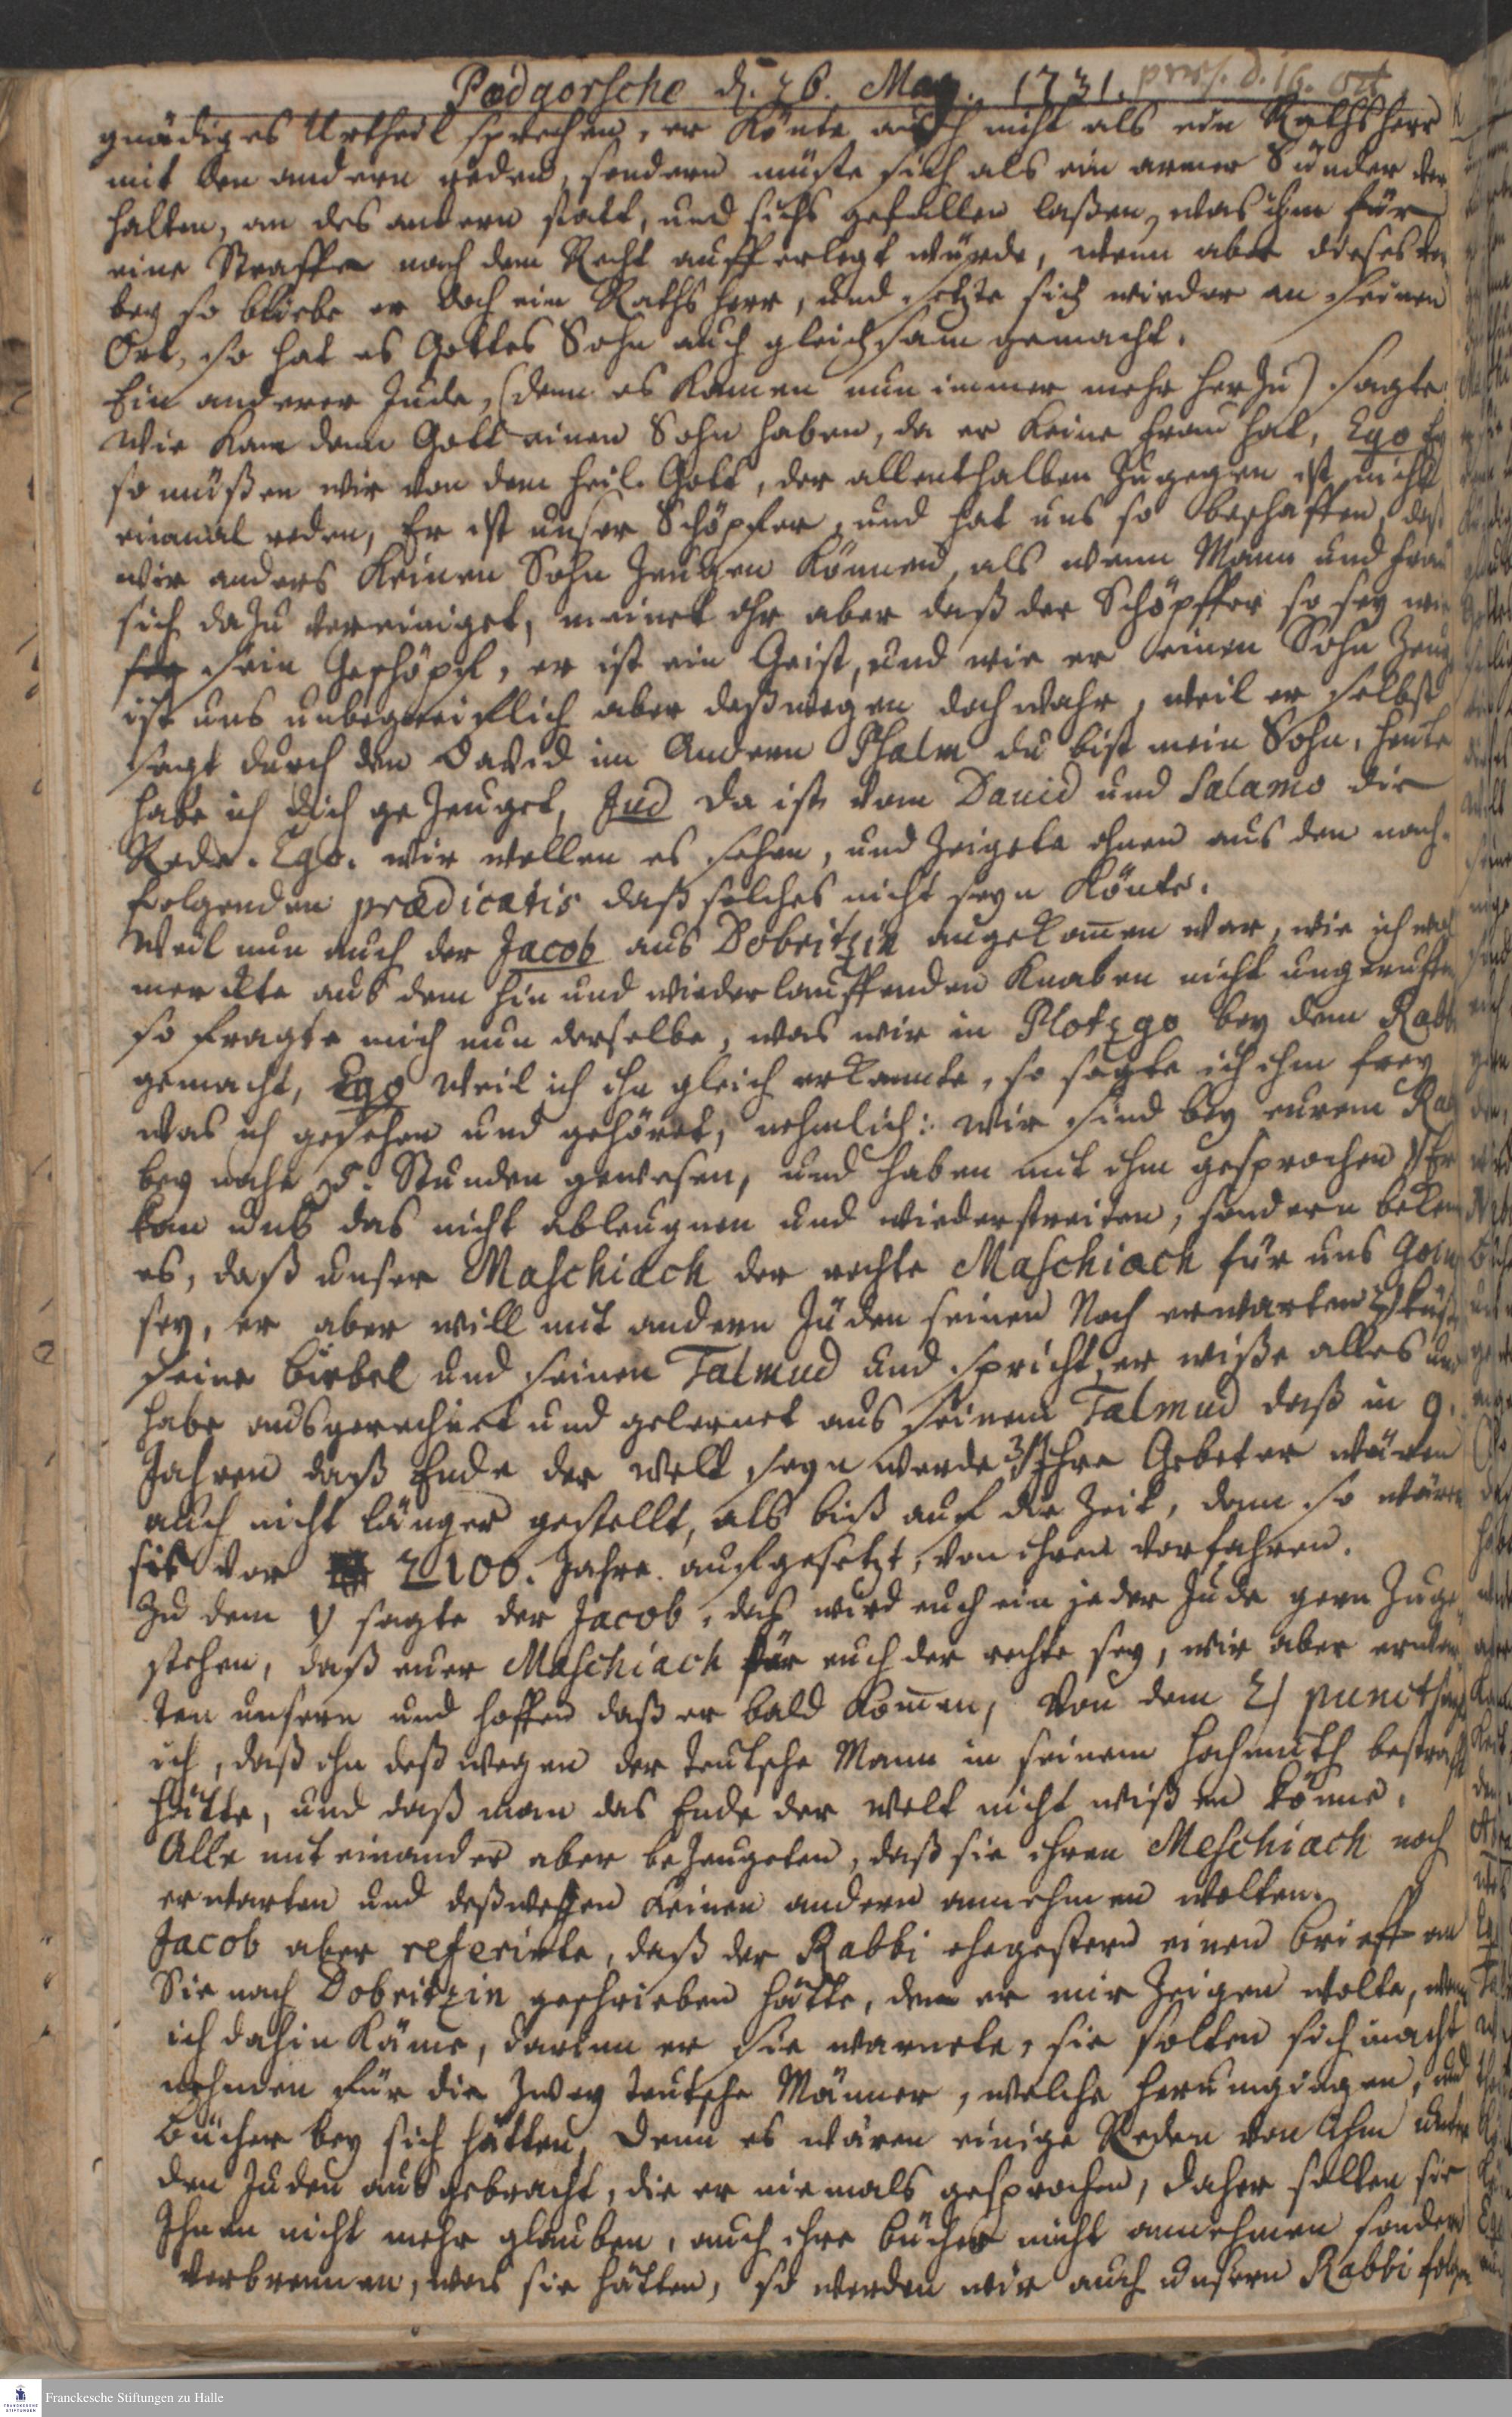 Podgorsche d. 26. May. 1731. pres. d. 16. Oct
gnädiges Urtheil sprechen, er könte auch nicht als ein Rathsherr
mit den andern reden, sondern müste sich als ein armer Sünder ver
halten, an des andern statt, und sichs gefallen laßen, was ihm für
eine Straffe nach dem Recht aufferlegt würde, wenn aber dieses vor
bey so bliebe er doch ein Rathsherr, und setzte sich wieder an seinen
Ort, so hat es Gottes Sohn auch gleichsam gemacht.
Ein anderer Jude, (denn es kamen nun immer mehr herzu) sagte:
Wie kan denn Gott einen Sohn haben, da er keine Frau hat, Ego Ey
so müßen wir von dem heil. Gott, der allenthalben zugegen ist nicht
einmal reden, Er ist unser Schöpfer, und hat uns so beschaffen, daß
wir anders keinen Sohn zeugen können, als wenn Mann und Frau
sich dazu vereiniget, meinet ihr aber daß der Schöpffer so sey wie
sein Geschöpf, er ist ein Geist, und wie er seinen Sohn zeug
ist uns unbegreiflich aber deßwegen doch wahr, weil er selbst
sagt durch den David im Andern Psalm du bist mein Sohn, heute
habe ich dich gezeuget, Jud da ist vom David und Salamo die
Rede. Ego. wir wollen es sehen, und zeigete ihnen aus den nach-
folgenden prædicatis daß solches nicht seyn könte.
Weil nun auch der Jacob aus Dobritzin angekom̄en war, wie ich wol
merckte aus dem hin und wiederlauffenden Knaben nicht ungeruffen
so fragte mich nun derselbe, was wir in Plotzgo bey dem Rabbi
gemacht, Ego Weil ich ihn gleich erkannte, so sagte ich ihm frey
was ich gesehen und gehöret, nehmlich: Wir sind bey eurem Rab
bey nahe 5. Stunden gewesen, und haben mit ihm gesprochen 1) Er
kan uns das nicht ableugnen und wiederstreiten, sondern beken
es, daß unser Maschiach der rechte Maschiach für uns Goim
sey, er aber will mit andern Juden seinen Noch erwarten 2) küst
seine Biebel und seinen Talmud und spricht, er wiße alles und
habe ausgerechnet und gelernet aus seinem Talmud daß in 9.
Jahren daß Ende der Welt seyn werde 3) Ihre Gebeter wären
auch nicht länger gestellt, als biß auf die Zeit, denn so wären
sie vor 2100. Jahre aufgesetzt, von ihren Vorfahren.
Zu dem 1) sagte der Jacob, das wird euch ein jeder Jude gern zuge
stehen, daß euer Maschiach für euch der rechte sey, wir aber erwar
ten unsern und hoffen daß er bald kom̄en, Von dem 2) punct sagt
ich, daß ihn deßwegen der teutsche Mann in seinem Hochmuth bestrafft
hätte, und daß man das Ende der Welt nicht wißen könne.
Alle mit einander aber bezeugeten, daß sie ihren Meschiach noch
erwarten und deßwegen keinen andern annehmen wolten.
Jacob aber referirte, daß der Rabbi ehegestern einen Brieff an
Sie nach Dobritzin geschrieben hätte, den er mir zeigen wolte, wen
ich dahin käme, darinn er sie warnete, sie solten sich in acht
nehmen für die zwey teutsche Männer, welche herumgingen, und
Bücher bey sich hätten, denn es wären einige Reden von Ihm unter
den Juden ausgebracht, die er niemals gesprochen, daher solten sie
Ihnen nicht mehr glauben, auch ihre Bücher nicht annehmen sondern
verbrennen, was sie hätten, so werden wir auch unsern Rabbi folgen
Franckesche Stiftungen zu Halle